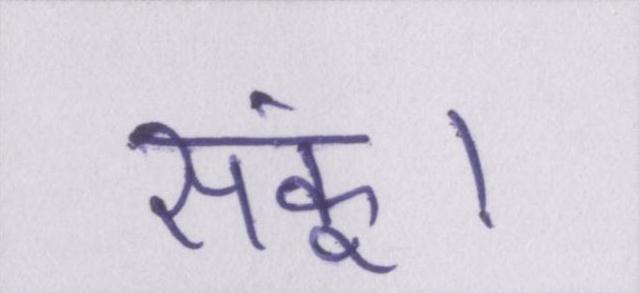 संकू।